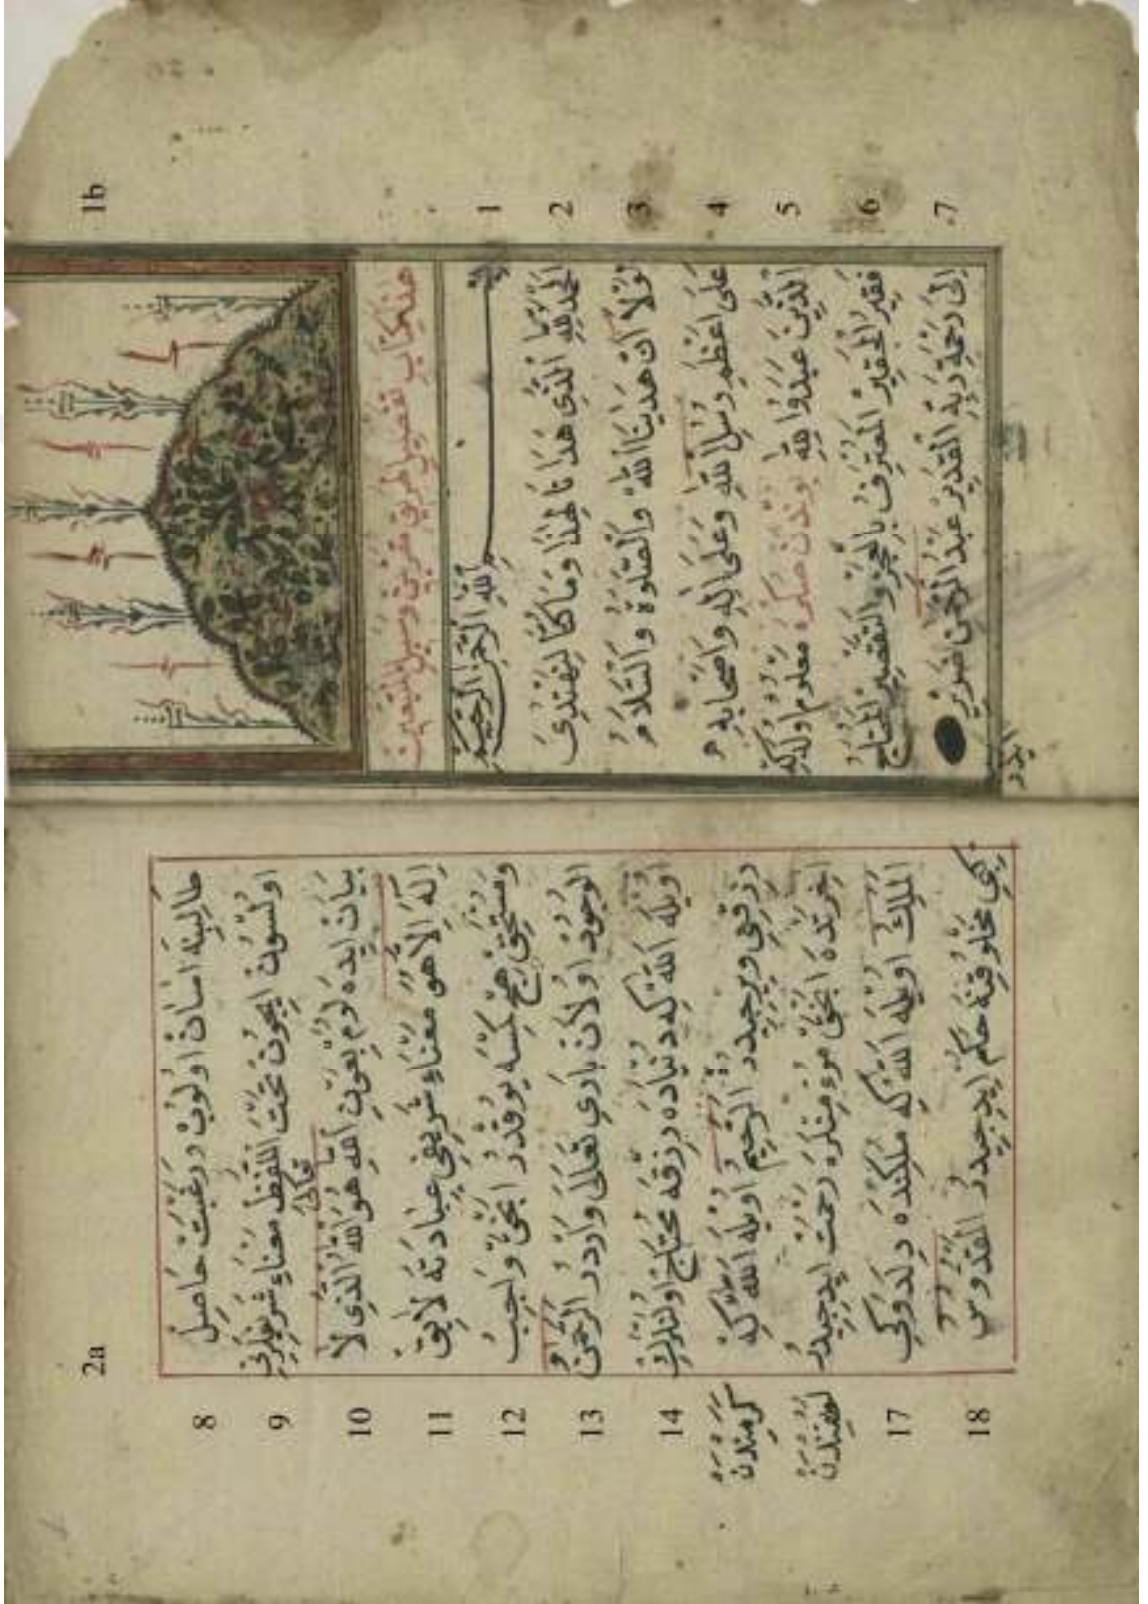 1b
هذا كتاب تفصيل طريق مقربين وسبيل المتبعين
1
بسم الله الرحمن الرحيم
2
اَلْحَمْدُ لِلّٰهِ الَّذِى هَدَانَا لِهٰذَا وَمَا كُنَّا لِنَهْتَدِىَ
3
لَوْلَا اَنْ هَدٰينَا اللّٰهُ وَالصَّلٰوةُ وَالسَّلَامُ
4
عَلٰى اَعْظَمِ رُسُلِ اللّٰهِ وَعَلٰى اٰلِهِ وَاَصْحَابِهِ
5
الَّذِينَ عَبَدُوا لِلّٰهِ بوندن صكره معلوم اوله كه
6
فَقِيرُ الْحَقِيرْ الْمُعْتَرِفْ بِالْعَجْزِ وَالتَّقْصِيرْ الْمُحْتَاجْ
7
اِلٰى رَحْمَةِ رَبِّهِ الْقَدِيرْ عَبْدُ الرَّحْمٰن ضَرِيرْ
ايدر
2a
8
طالبينه اسان اولوب ورغبت حاصل
9
اولسون ايچون تحت اللفظ معناء شريفلرينى
10
بيان ايده لوم بعون الله تعالى هُوَ اللّٰهُ الَّذِى لَا
11
اِلٰهَ اِلَّا هُوَ معناء شريفى عبادته لايق
12
ومستحق هيچ كمسه يوقدر انجق واجب
13
الوجود اولان بارى تعالى واردر الرَّحْمٰنُ
14
اويله الله كه دنياده رزقه محتاج اولنلرك
كرمندن
رزقنى ويرجيدر الرَّحِيمُ اويله الله كه
لطفندن
اخرتده انجق مؤمنلره رحمت ايدجيدر
17
الْمَلِكُ اويله الله كه ملكنده ديلدوكى
18
كبى مخلوقينه حكم ايدجيدر الْقُدُّوسُ